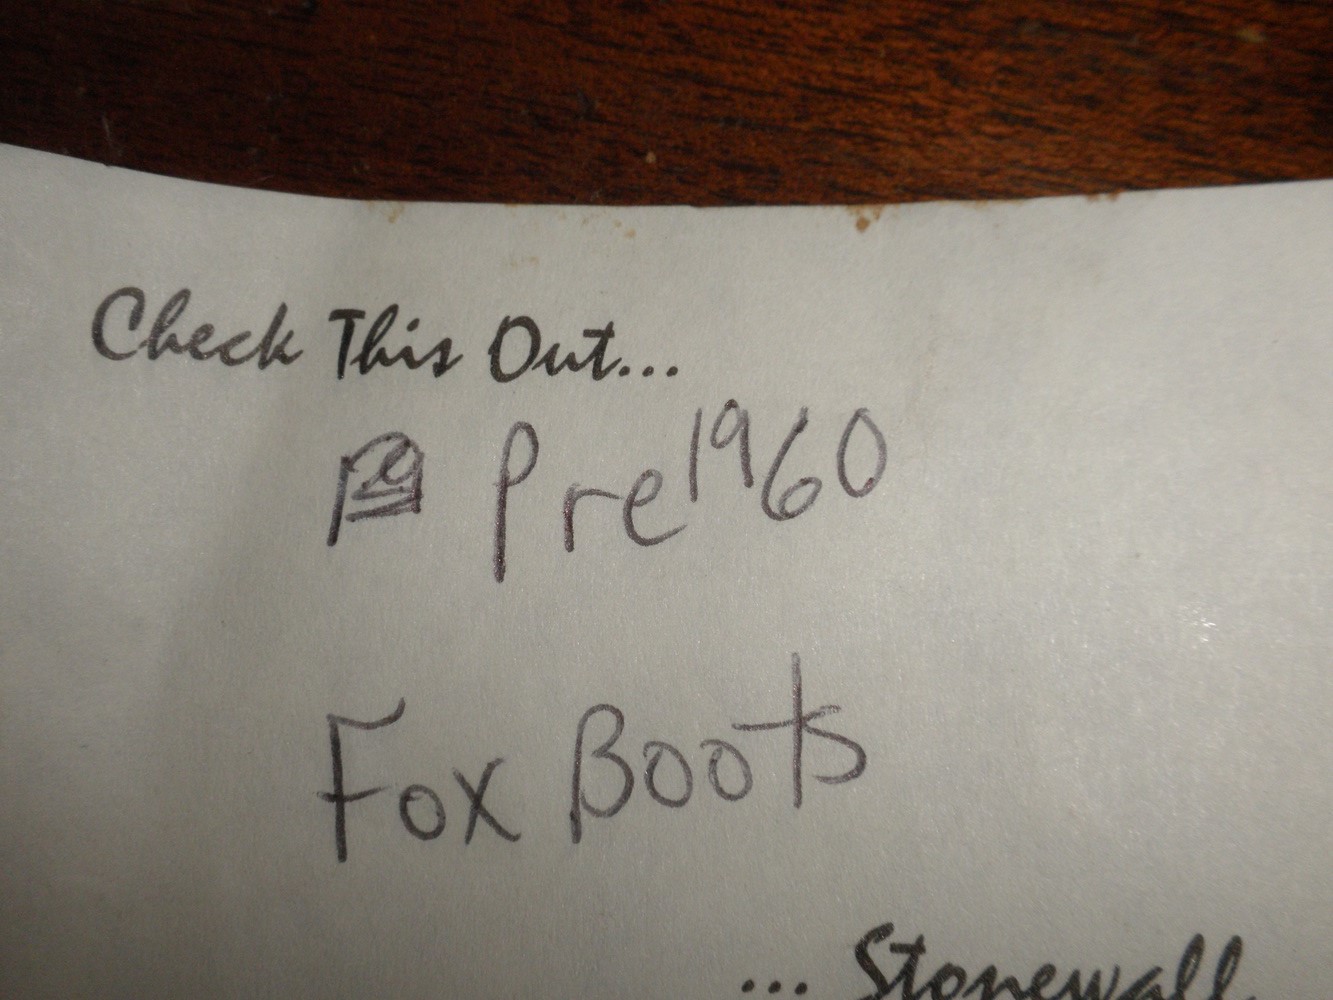 Check This Out...
Pre 1960
Fox Boots
... Stonewall